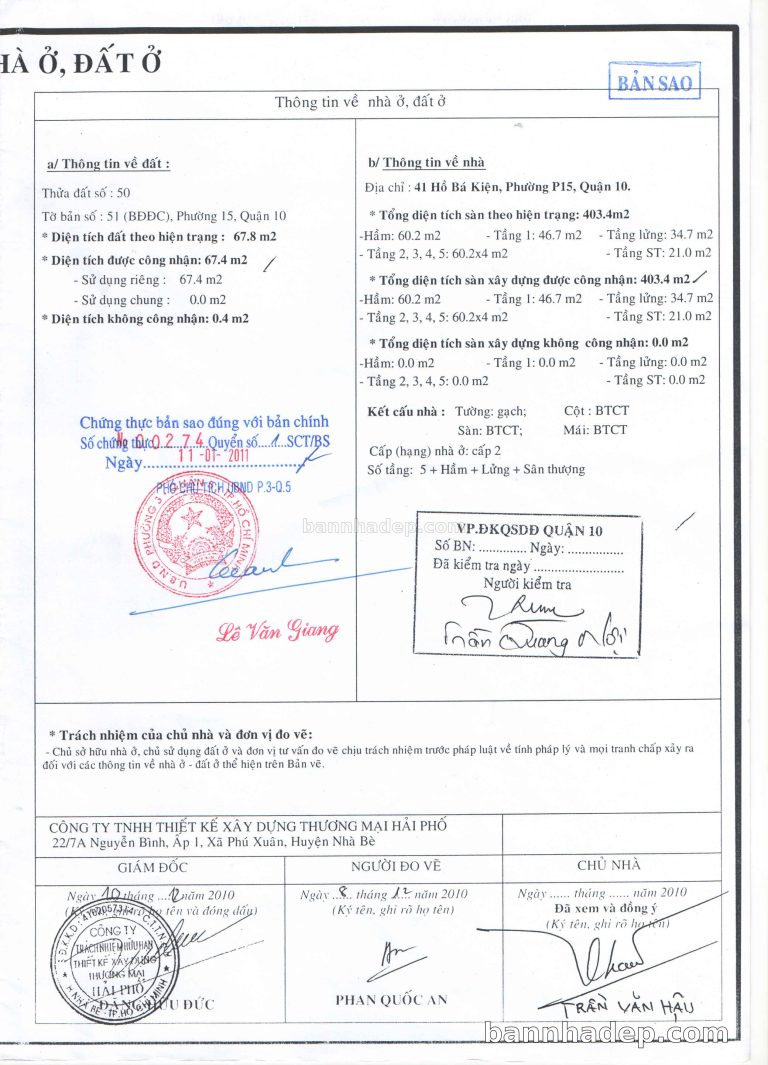 HÀ Ở, ĐẤT Ở
BẢN SAO
Thông tin về nhà ở, đất ở
a/ Thông tin về đất :
Thửa đất số : 50
Tờ bản số : 51 (BĐĐC), Phường 15, Quận 10
* Diện tích đất theo hiện trạng : 67.8 m2
* Diện tích được công nhận: 67.4 m2
- Sử dụng riêng : 67.4 m2
- Sử dụng chung : 0.0 m2
* Diện tích không công nhận: 0.4 m2
Chứng thực bản sao đúng với bản chính
Số chứng thực № 00274 Quyển số 1 SCT/BS
Ngày 11-01-2011
PHÓ CHỦ TỊCH UBND P.3-Q.5
U.B.N.D PHƯỜNG 3 T.P HỒ CHÍ MINH
Lê Văn Giang
b/ Thông tin về nhà
Địa chỉ : 41 Hồ Bá Kiện, Phường P15, Quận 10.
* Tổng diện tích sàn theo hiện trạng: 403.4m2
-Hầm: 60.2 m2 - Tầng 1: 46.7 m2 - Tầng lửng: 34.7 m2
- Tầng 2, 3, 4, 5: 60.2x4 m2 - Tầng ST: 21.0 m2
* Tổng diện tích sàn xây dựng được công nhận: 403.4 m2
-Hầm: 60.2 m2 - Tầng 1: 46.7 m2 - Tầng lửng: 34.7 m2
- Tầng 2, 3, 4, 5: 60.2x4 m2 - Tầng ST: 21.0 m2
* Tổng diện tích sàn xây dựng không công nhận: 0.0 m2
-Hầm: 0.0 m2 - Tầng 1: 0.0 m2 - Tầng lửng: 0.0 m2
- Tầng 2, 3, 4, 5: 0.0 m2 - Tầng ST: 0.0 m2
Kết cấu nhà : Tường: gạch; Cột : BTCT
Sàn: BTCT; Mái: BTCT
Cấp (hạng) nhà ở: cấp 2
Số tầng: 5 + Hầm + Lửng + Sân thượng
bannhadep.com
VP.ĐKQSDĐ QUẬN 10
Số BN: .............. Ngày: ...............
Đã kiểm tra ngày .......................
Người kiểm tra
Trần Quang Nội
* Trách nhiệm của chủ nhà và đơn vị đo vẽ:
- Chủ sở hữu nhà ở, chủ sử dụng đất ở và đơn vị tư vấn đo vẽ chịu trách nhiệm trước pháp luật về tính pháp lý và mọi tranh chấp xảy ra
đối với các thông tin về nhà ở - đất ở thể hiện trên Bản vẽ.
CÔNG TY TNHH THIẾT KẾ XÂY DỰNG THƯƠNG MẠI HẢI PHỐ
22/7A Nguyễn Bình, Ấp 1, Xã Phú Xuân, Huyện Nhà Bè
GIÁM ĐỐC
Ngày 10 tháng 12 năm 2010
(Ký tên, ghi rõ họ tên và đóng dấu)
CÔNG TY
TRÁCH NHIỆM HỮU HẠN
THIẾT KẾ XÂY DỰNG
THƯƠNG MẠI
HẢI PHỐ
H.NHÀ BÈ - T.P HỒ CHÍ MINH
ĐẶNG HỮU ĐỨC
NGƯỜI ĐO VẼ
Ngày 8 tháng 12 năm 2010
(Ký tên, ghi rõ họ tên)
PHAN QUỐC AN
CHỦ NHÀ
Ngày ...... tháng ...... năm 2010
Đã xem và đồng ý
(Ký tên, ghi rõ họ tên)
TRẦN VĂN HẬU
bannhadep.com